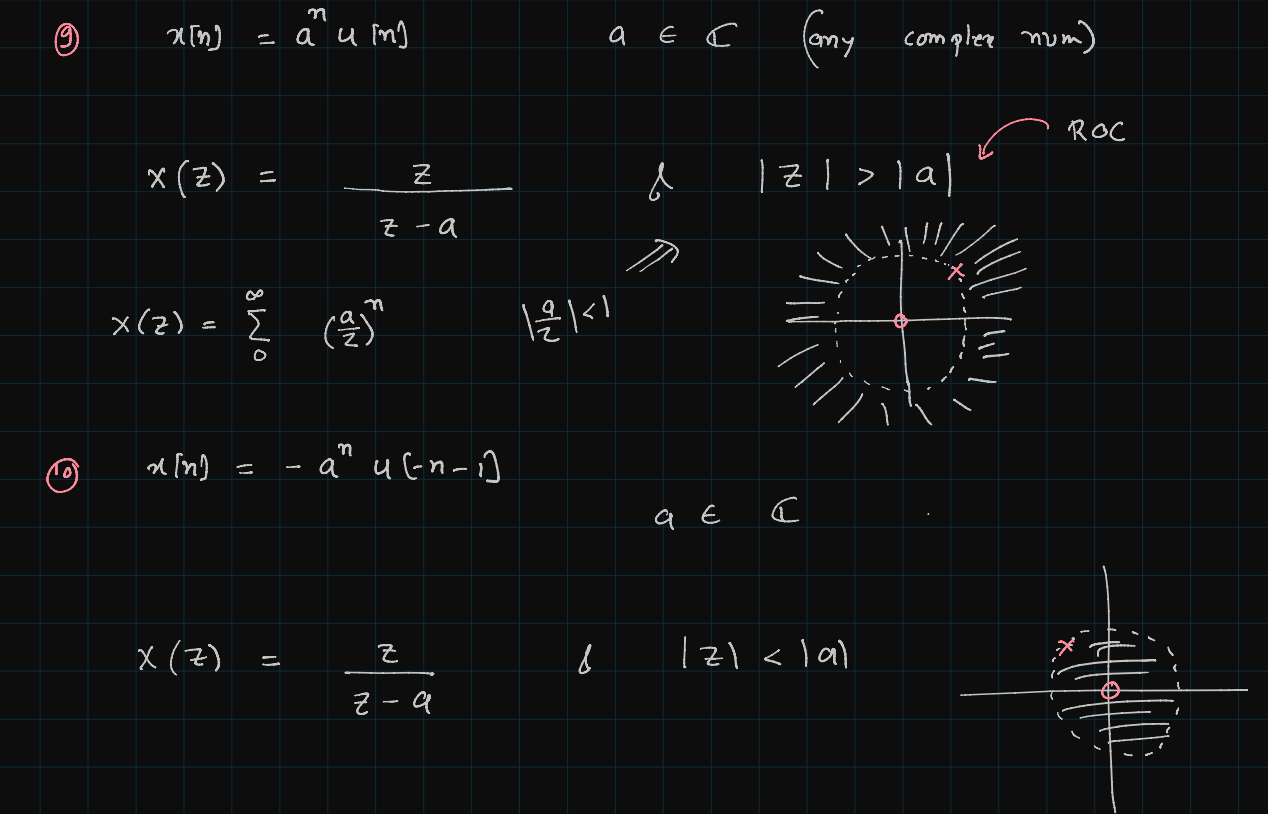 ⑨ x[n] = aⁿ u[n] a ∈ ℂ (any complex num)
ROC
X(z) = z / (z - a) & |z| > |a|
X(z) = ∑₀^∞ (a/z)ⁿ |a/z| < 1 ⇒
⑩ x[n] = - aⁿ u[-n-1]
a ∈ ℂ
X(z) = z / (z - a) & |z| < |a|